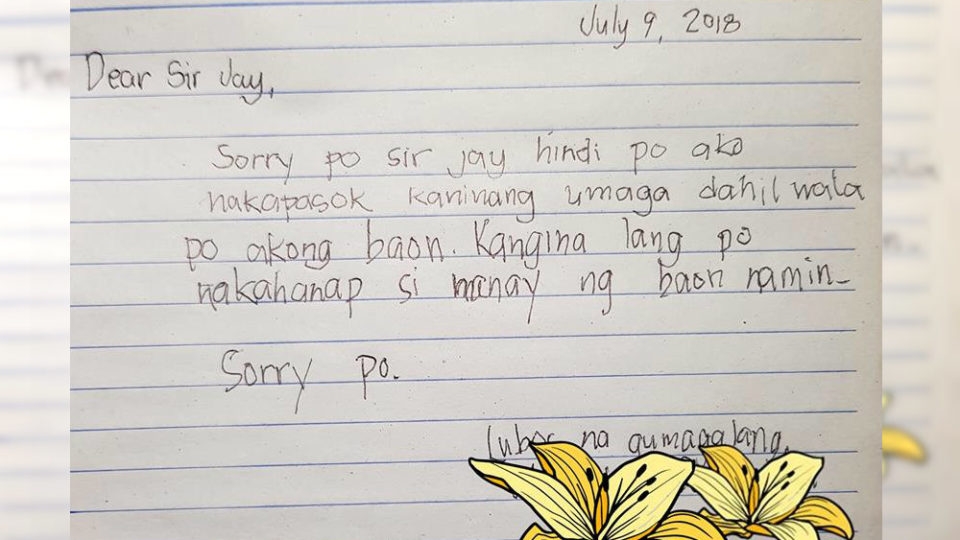 July 9, 2018
Dear Sir Jay,
Sorry po sir jay hindi po ako
nakapasok kaninang umaga dahil wala
po akong baon. Kangina lang po
nakahanap si nanay ng baon namin.
Sorry po.
Lubos na gumagalang,